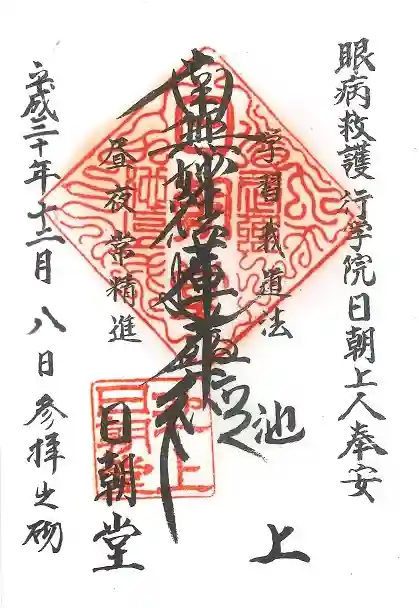 眼病救護 行学院日朝上人奉安
学習我道法
南無妙法蓮華経
昼夜常精進
池上
日朝堂
平成三十年十二月 八日参拝之砌